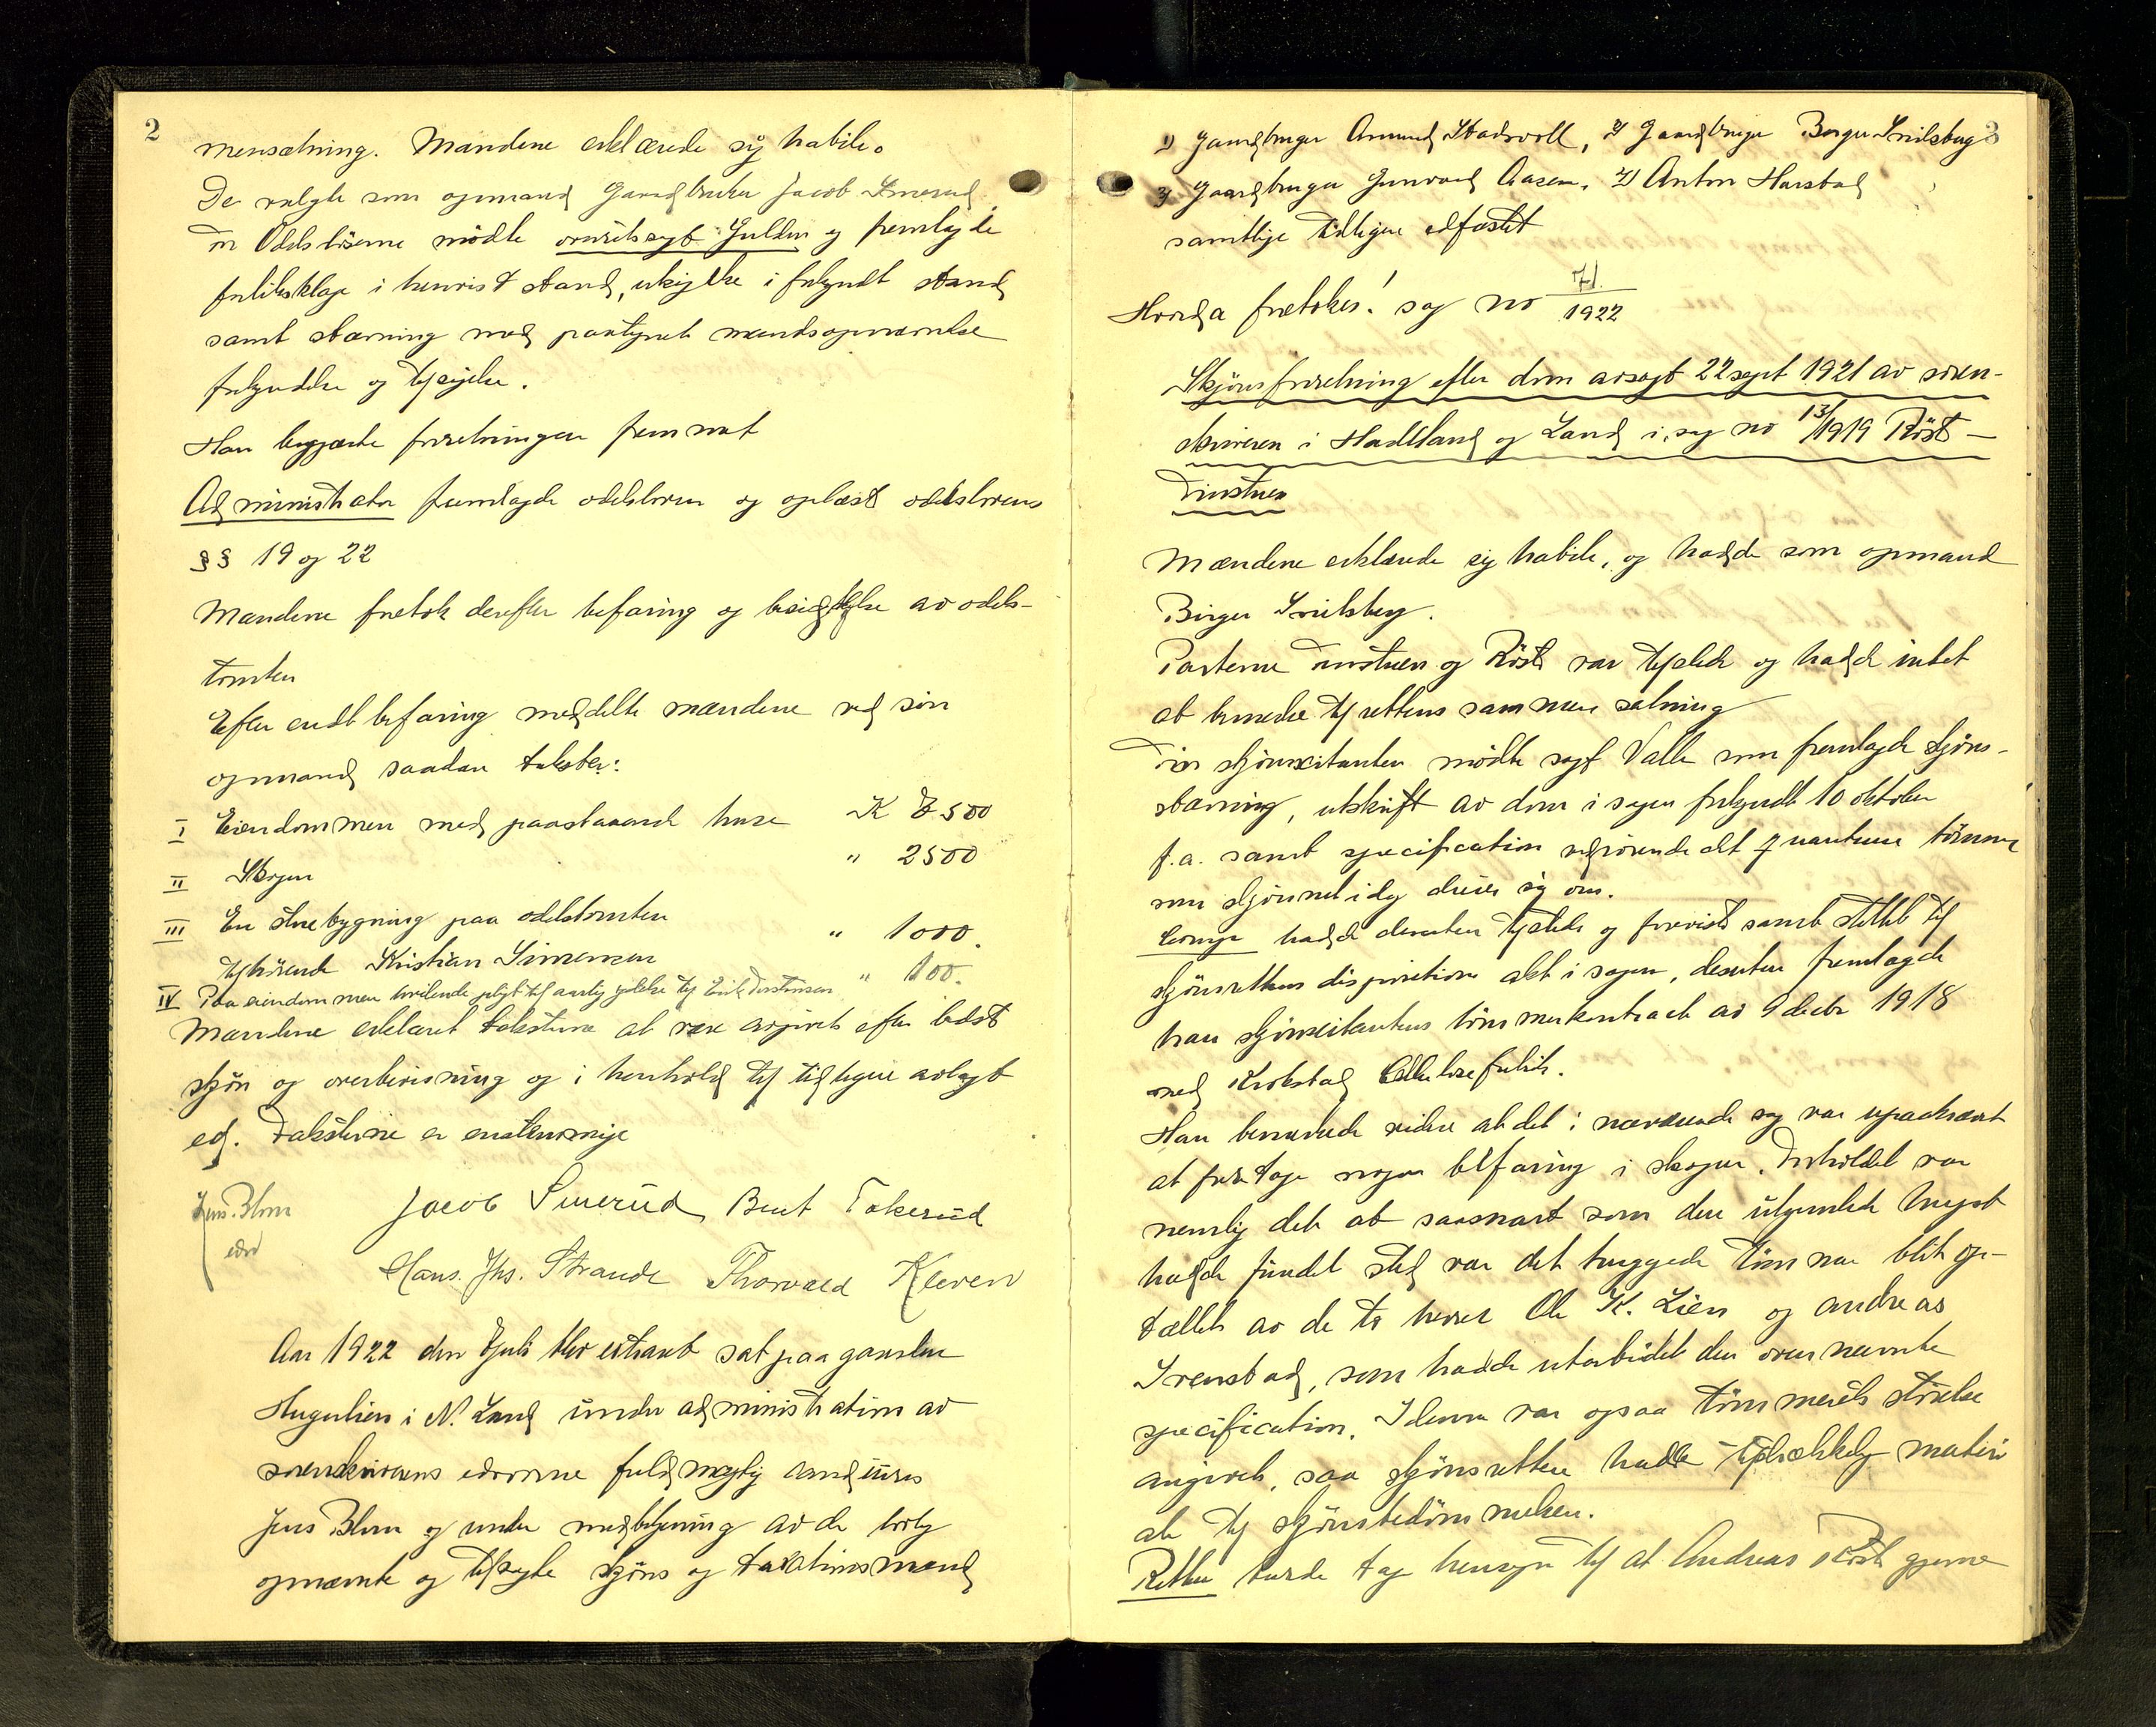 2
mensætning. Mændene erklærede sig habile.
De valgte som opmand Gaardbruker Jacob Smerud.
For Odelsløserne mødte overretssagf. Gulden og fremlagde
forliksklage i henvist stand, utskrift i forkyndt stand
samt stævning med paategnet mandsopnævnelse
forkyndelse og tilsigelse.
Han begjærte forretningen fremmet
Administrator fremlagde odelsloven og oplæst odelslovens
§§ 19 og 22
Mændene foretok derefter befaring og besigtigelse av odels-
tomten
Efter endt befaring meddelte mændene ved sin
opmand saadan takster:
I Eiendommen med paastaaende huse K 8500
II Skogen " 2500
III En stuebygning paa odelstomten
tilhørende Kristian Simensen " 1000.
IV Paa eiendommen hvilende pligt til aarlig ydelse til Erik Torstensen " 100.
Mændene erklæret taksterne at være avgivet efter bedst
skjøn og overbevisning og i henhold til tidligere avlagt
ed. Taksterne er enstemmige
Jens Blom
edsv
Jacob Smerud Bent Tokerud
Hans. Jhs. Strande Thorvald Kleven
Aar 1922 den 7 juli blev extraret sat paa gaarden
Haugalien i N. Land under administration av
sorenskriverens edsvorne fuldmægtig cand juris
Jens Blom og under medbetjening av de lovlig
opnævnte og tilsagte skjøns og taxationsmænd
3
1) Gaardbruger Amund Stadsvoll, 2) Gaardbruger Birger Snilsberg
3) Gaardbruger Gunvard Aasen, 4) Anton Harstad
samtlige tidligere edfæstet
Hvorda foretokes: sag no 7d./1922
Skjønsforretning efter dom avsagt 22 sept 1921 av soren-
skriveren i Hadeland og Land i sag no 13/1919 Røste -
Tinstuen
Mændene erklærede sig habile, og hadde som opmand
Birger Snilsberg.
Parterne Tinstuen og Røste var tilstede og hadde intet
at bemerke til rettens sammensætning
For skjønscitanten mødte sagf. Valle som fremlagde skjøns-
stævning, utskrift av dom i sagen forkyndt 10 oktober
f.a. samt specification vedrørende det quantum tømmer
som skjønnet idag dreier sig om.
Comp. hadde desuten tilstede og forevist samt stillet til
skjønsrettens disposition akt i sagen, desuten fremlagde
han skjønscitantens tømmerkontrakt av 9 decbr 1918
med Krokstad Cellulosefabrik.
Han bemerkede videre at det i nærværende sag var upaakrævet
at foretage nogen befaring i skogen. Forholdet var
nemlig det at saasnart som den utgjørende hugst
hadde fundet sted var det huggede tømmer blit op-
tællet av de to herrer Ole K. Lien og Andreas
Svenstad, som hadde utarbeidet den ovennævnte
specification. I denne var ogsaa tømmerets størrelse
angivet, saa skjønsretten hadde tilstrækkelig materi
ale til skjønsbedømmelsen.
Retten burde tage hensyn til at Andreas Røste gjerne